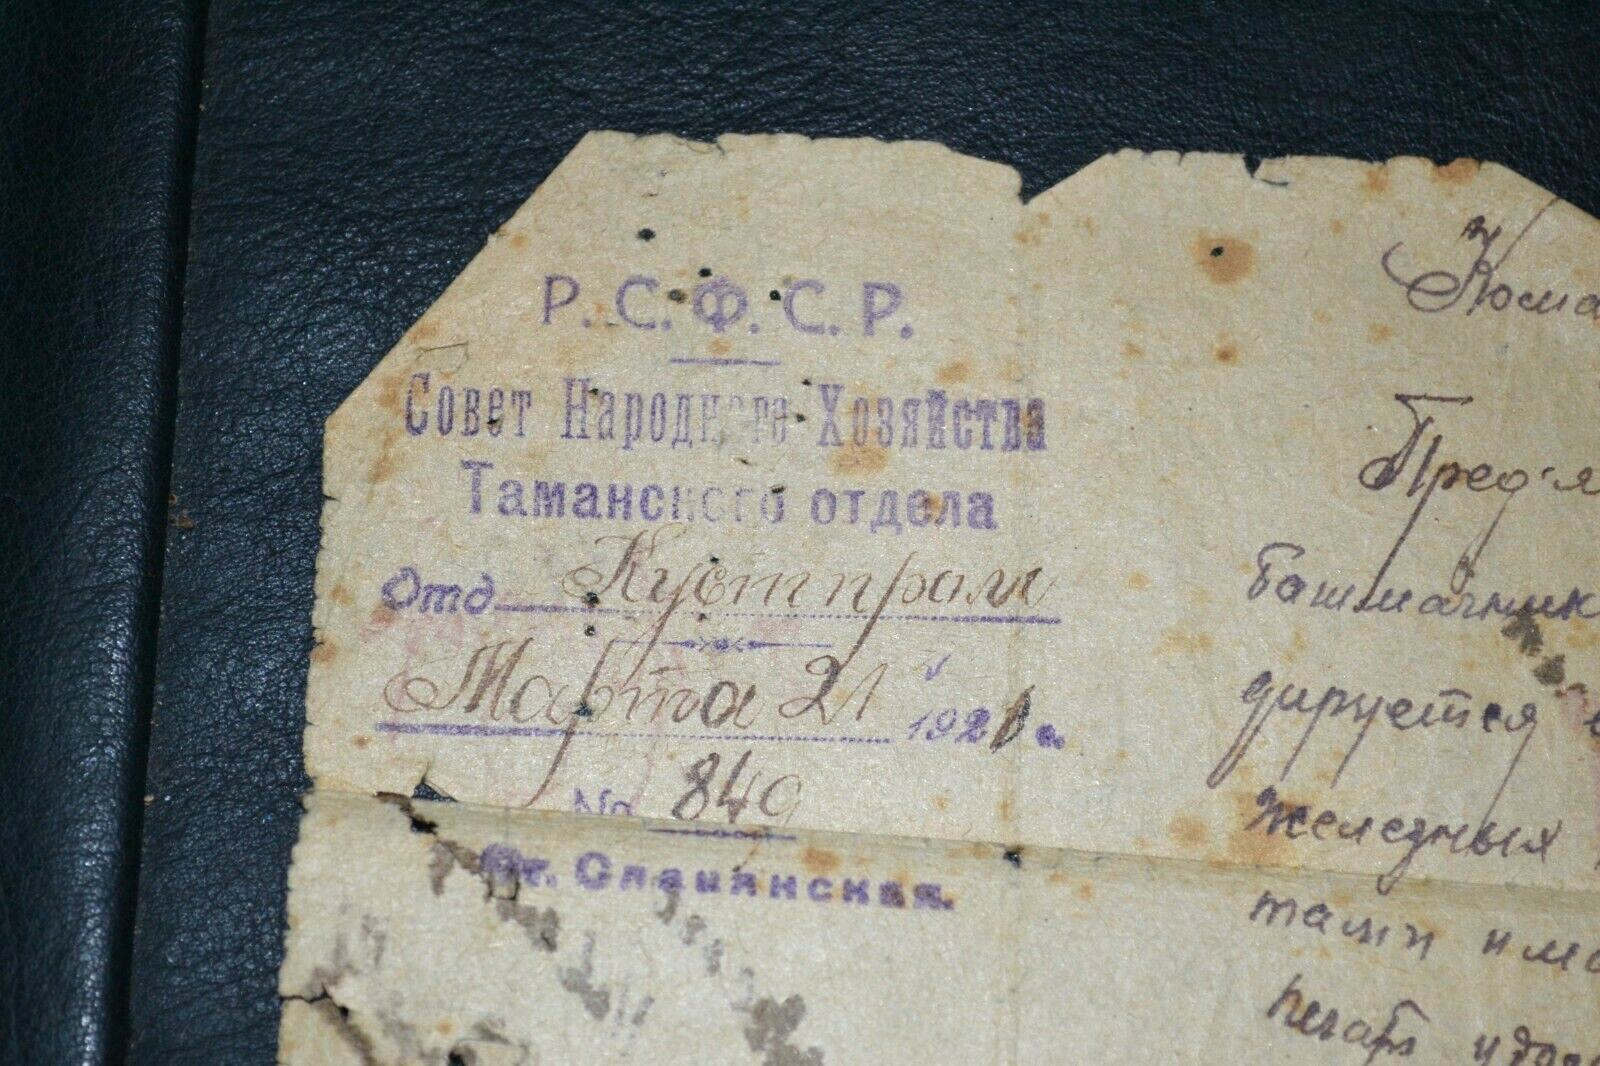 Р. С. Ф. С. Р.
Совет Народного Хозяйства
Таманского отдела
Отд Кустпром
Марта 21 1921 г.
№ 849
Ст. Славянская.
Кома
Пред'я
башмачник
дируется
железных
тами има
печать удос